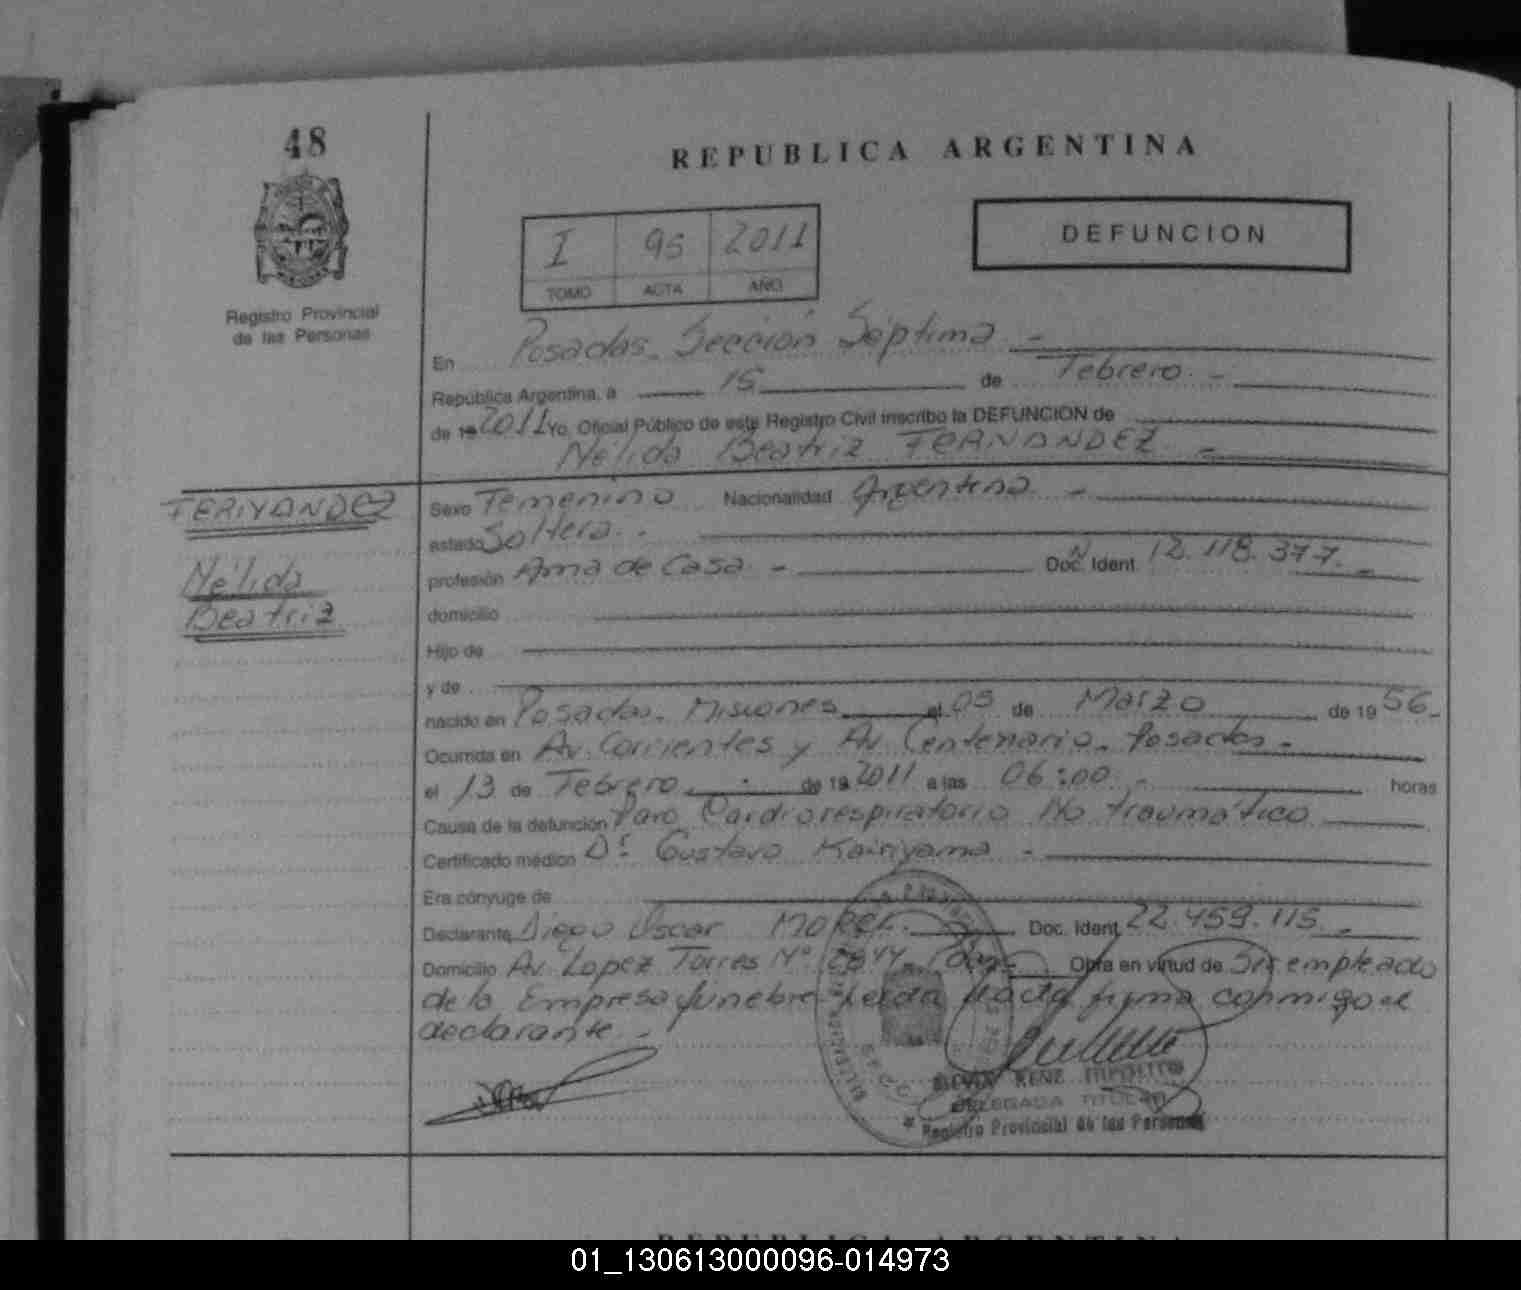 48
REPUBLICA ARGENTINA
I 95 2011
TOMO ACTA AÑO
DEFUNCION
Registro Provincial
de las Personas
En Posadas. Sección Séptima -
República Argentina, a 15 de Febrero. -
de 19 2011 Yo, Oficial Público de este Registro Civil inscribo la DEFUNCION de
Nélida Beatriz FERNANDEZ -
FERNANDEZ
Nélida
Beatriz
Sexo Femenino Nacionalidad Argentina -
estado Soltera. -
profesión Ama de Casa - Doc. Ident. 12.118.377. -
domicilio
Hijo de
y de
nacido en Posadas. Misiones el 05 de Marzo de 19 56 -
Ocurrida en Av. Corrientes y Av. Centenario - Posadas -
el 13 de Febrero. de 19 2011 a las 06:00 - horas
Causa de la defunción Paro Cardiorespiratorio No traumático
Certificado médico Dr. Gustavo -
Era cónyuge de
Declarante Diego Oscar Doc. Ident. 22.459.115. -
Domicilio Av. Lopez Torres Nº Obra en virtud de Ser empleado
de la Empresa fúnebre Leída el acta firma conmigo el
declarante -
RENE
DELEGADA TITULAR
Registro Provincial de las Personas
REPUBLICA ARGENTINA
01_130613000096-014973